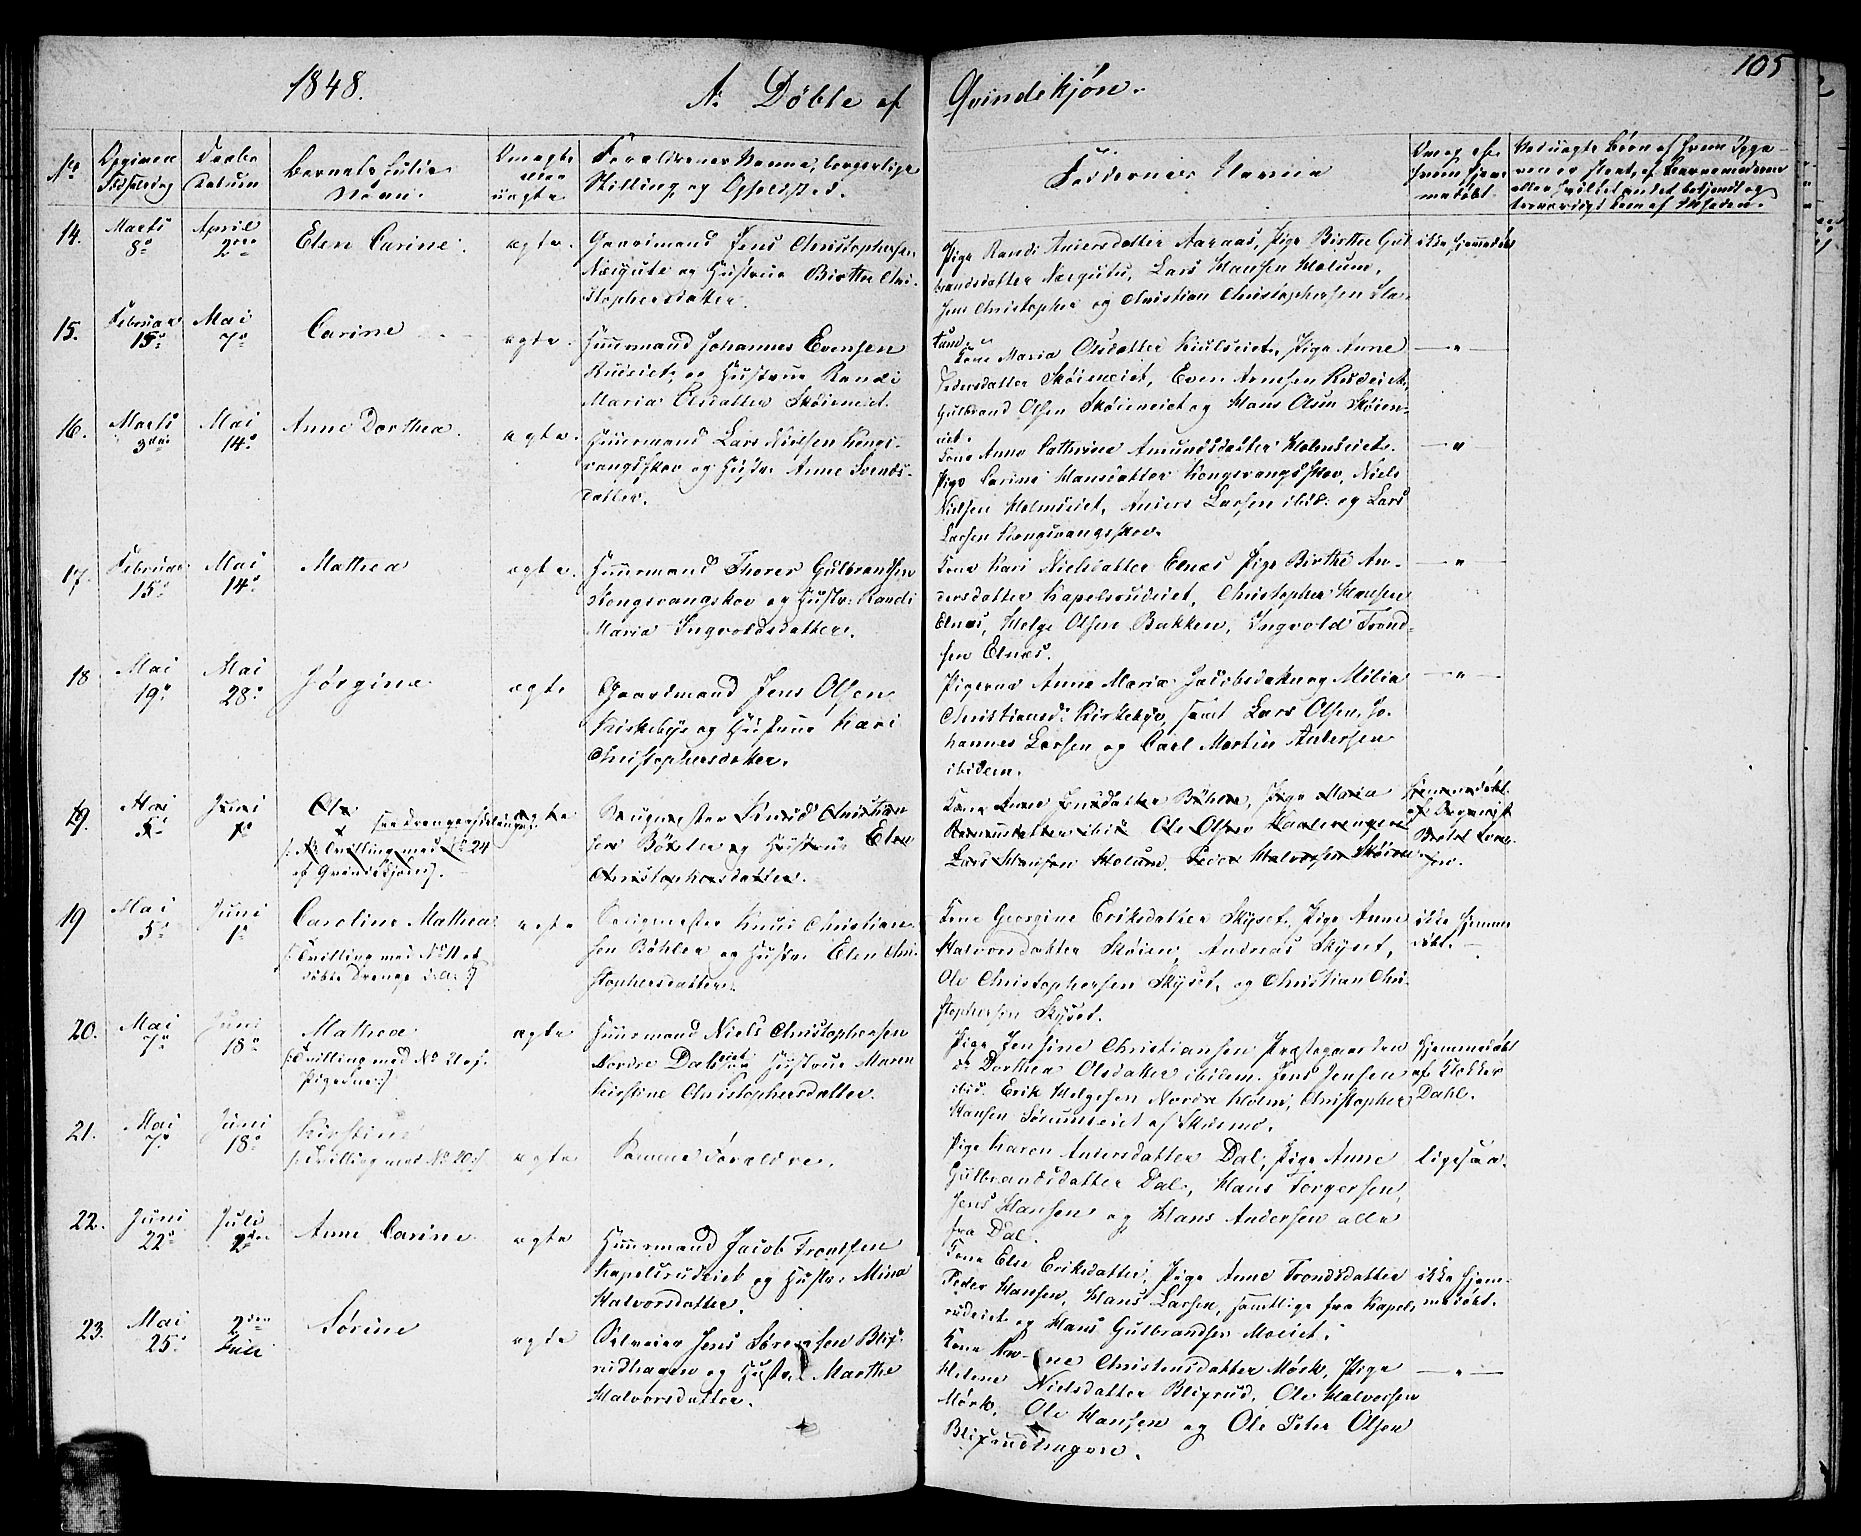 1848.
A. Døbte af Qvindekjøn.
105
No
Opgiven Fødselsdag
Daabs Datum
Barnets fulde Navn.
Om ægte eller uægte
Forældrenes Navne, borgerlige Stilling og Opholdsted.
Faddernes Navne
Om og af hvem hjemmedøbt.
14.
Marts 8de
April 2den
Elen Carine.
ægte.
Gaardmand Jens Christophersen
Næsgute og Hustrue Birthe Chri-
stophersdatter.
Pige Randi Andersdatter Aaraas, Pige Birthe Gul
brandsdatter Næsgutu, Lars Hansen Holum,
Jens Christopher og Christian Christophersen Sla-
tum.
ikke hjemmedøbt
15.
Februar 15de
Mai 7de
Carine
ægte.
Huusmand Johannes Evensen
Rudeiet, og Hustrue Randi
Maria Olsdatter Skøieneiet.
Kone Maria Olsdatter Kiulseiet, Pige Anne
Pedersdatter Skøieneiet, Even Arnesen Rudeiet,
Gulbrand Olsen Skøieneiet og Hans Olsen Skøien-
eiet.
— " —
16.
Marts 3die
Mai 14de
Anne Dorthea.
ægte.
Huusmand Lars Nielsen Kongs-
vangskov og Hustr. Anne Svends-
datter.
Kone Anne Cathrine Amundsdatter Holmseiet.
Pige Carine Hansdatter Kongsvangskov, Niels
Nielsen Holmseiet, Anders Larsen ibid. og Lars
Larsen Kongsvangskov.
— " —
17.
Februar 15de
Mai 14de
Mathea
ægte.
Huusmand Thorer Gulbrandsen
Kongsvangskov og Hustr: Randi
Maria Ingvoldsdatter.
Kone Kari Nielsdatter Elnæs Pige Birthe An-
dersdatter Kapelsrudeiet, Christopher Hansen
Elnæs, Helge Olsen Bakken, Ingvold Trond-
sen Elnæs.
— " —
18
Mai 19de
Mai 28de
Jørgine.
ægte
Gaardmand Jens Olsen
Kirkebye og Hustrue Kari
Christophersdatter.
Pigerne Anne Maria Jacobsdatter og Milia
Christiansd. Kirkebye, samt Lars Olsen, Jo-
hannes Larsen og Carl Martin Andersen
ibidem.
— " —
19.
Mai 5te
Juni 1ste
Ole
/: Tvilling med No 24
af Qvindekjøn :/.
ægte
Brugmester Knud Christian
sen Böhler og Hustrue Elen
Christophersdatter.
Ole Olsen
Lars Hansen Holum, Peder Halvorsen Skøien
19
Mai 5te
Juni 1ste
Caroline Mathea
/: Tvilling med No 11 af
døbte Drenge d. a. :/
ægte
Brugmester Knud Christian-
sen Böhler og Hustr. Elen Chri-
stophersdatter.
Kone Georgine Eriksdatter Skyset. Pige Anne
Halvorsdatter Skøien, Andreas Skyset,
Ole Christophersen Skyset, og Christian Chri-
stophersen Skyset.
ikke hjemme-
døbt.
20.
Mai 7de
Juni 18de
Mathea
/: Tvilling med No 21 af
Pigerne :/
ægte
Huusmand Niels Christophersen
Nordre Dahleiet og Hustrue Maren
Kirstine Christophersdatter.
Pige Jensine Christiansen Præstegaarden
do Dorthea Olsdatter ibidem. Jens Jensen
ibid. Erik Helgesen Nordre Holm, Christopher
Hansen Sørumseiet af Skusmo.
Hjemmedøbt
af Klokker
Dahl.
21.
Mai 7de
Juni 18de
Kirstine
/: Tvilling med No 20 :/
ægte
Samme Forældre.
Pige Karen Andersdatter Dal, Pige Anne
Gulbrandsdatter Dal, Hans Torgersen,
Jens Hansen og Hans Andersen alle
fra Dal.
ligesaa.
22.
Juni 22de
Juli 2den
Anne Carine
ægte
Huusmand Jacob Trondsen
Kapelsrudeiet og Hustr. Mina
Halvorsdatter.
Kone Else Eriksdatter, Pige Anne Trondsdatter
Peder Hansen, Hans Larsen, samtlige fra Kapels
rudeiet og Hans Gulbrandsen Moeiet.
ikke hjem-
medøbt.
23.
Mai 25de
2den Juli
Sørine
ægte
Opleier Jens Sørensen Blix-
rudhagen og Hustr. Marthe
Halvorsdatter.
Kone Anne Christensdatter Mörk, Pige
Helene Nielsdatter Blixrud, Ole Halvorsen
Mörk. Ole Hansen og Ole Peter Olsen
Blixrudhagen.
— " —